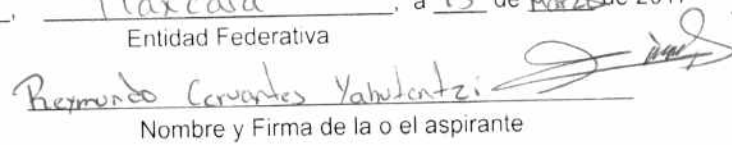 Tlaxcala, a 15 de Marzo de 201
Entidad Federativa
Reymundo Cervantes Yahuitentzi
Nombre y Firma de la o el aspirante